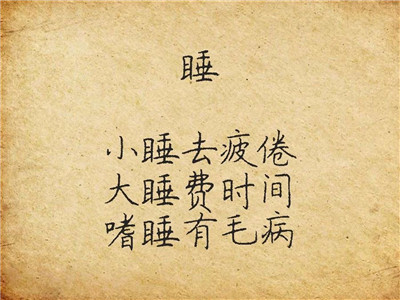 睡
小睡去疲倦
大睡费时间
嗜睡有毛病